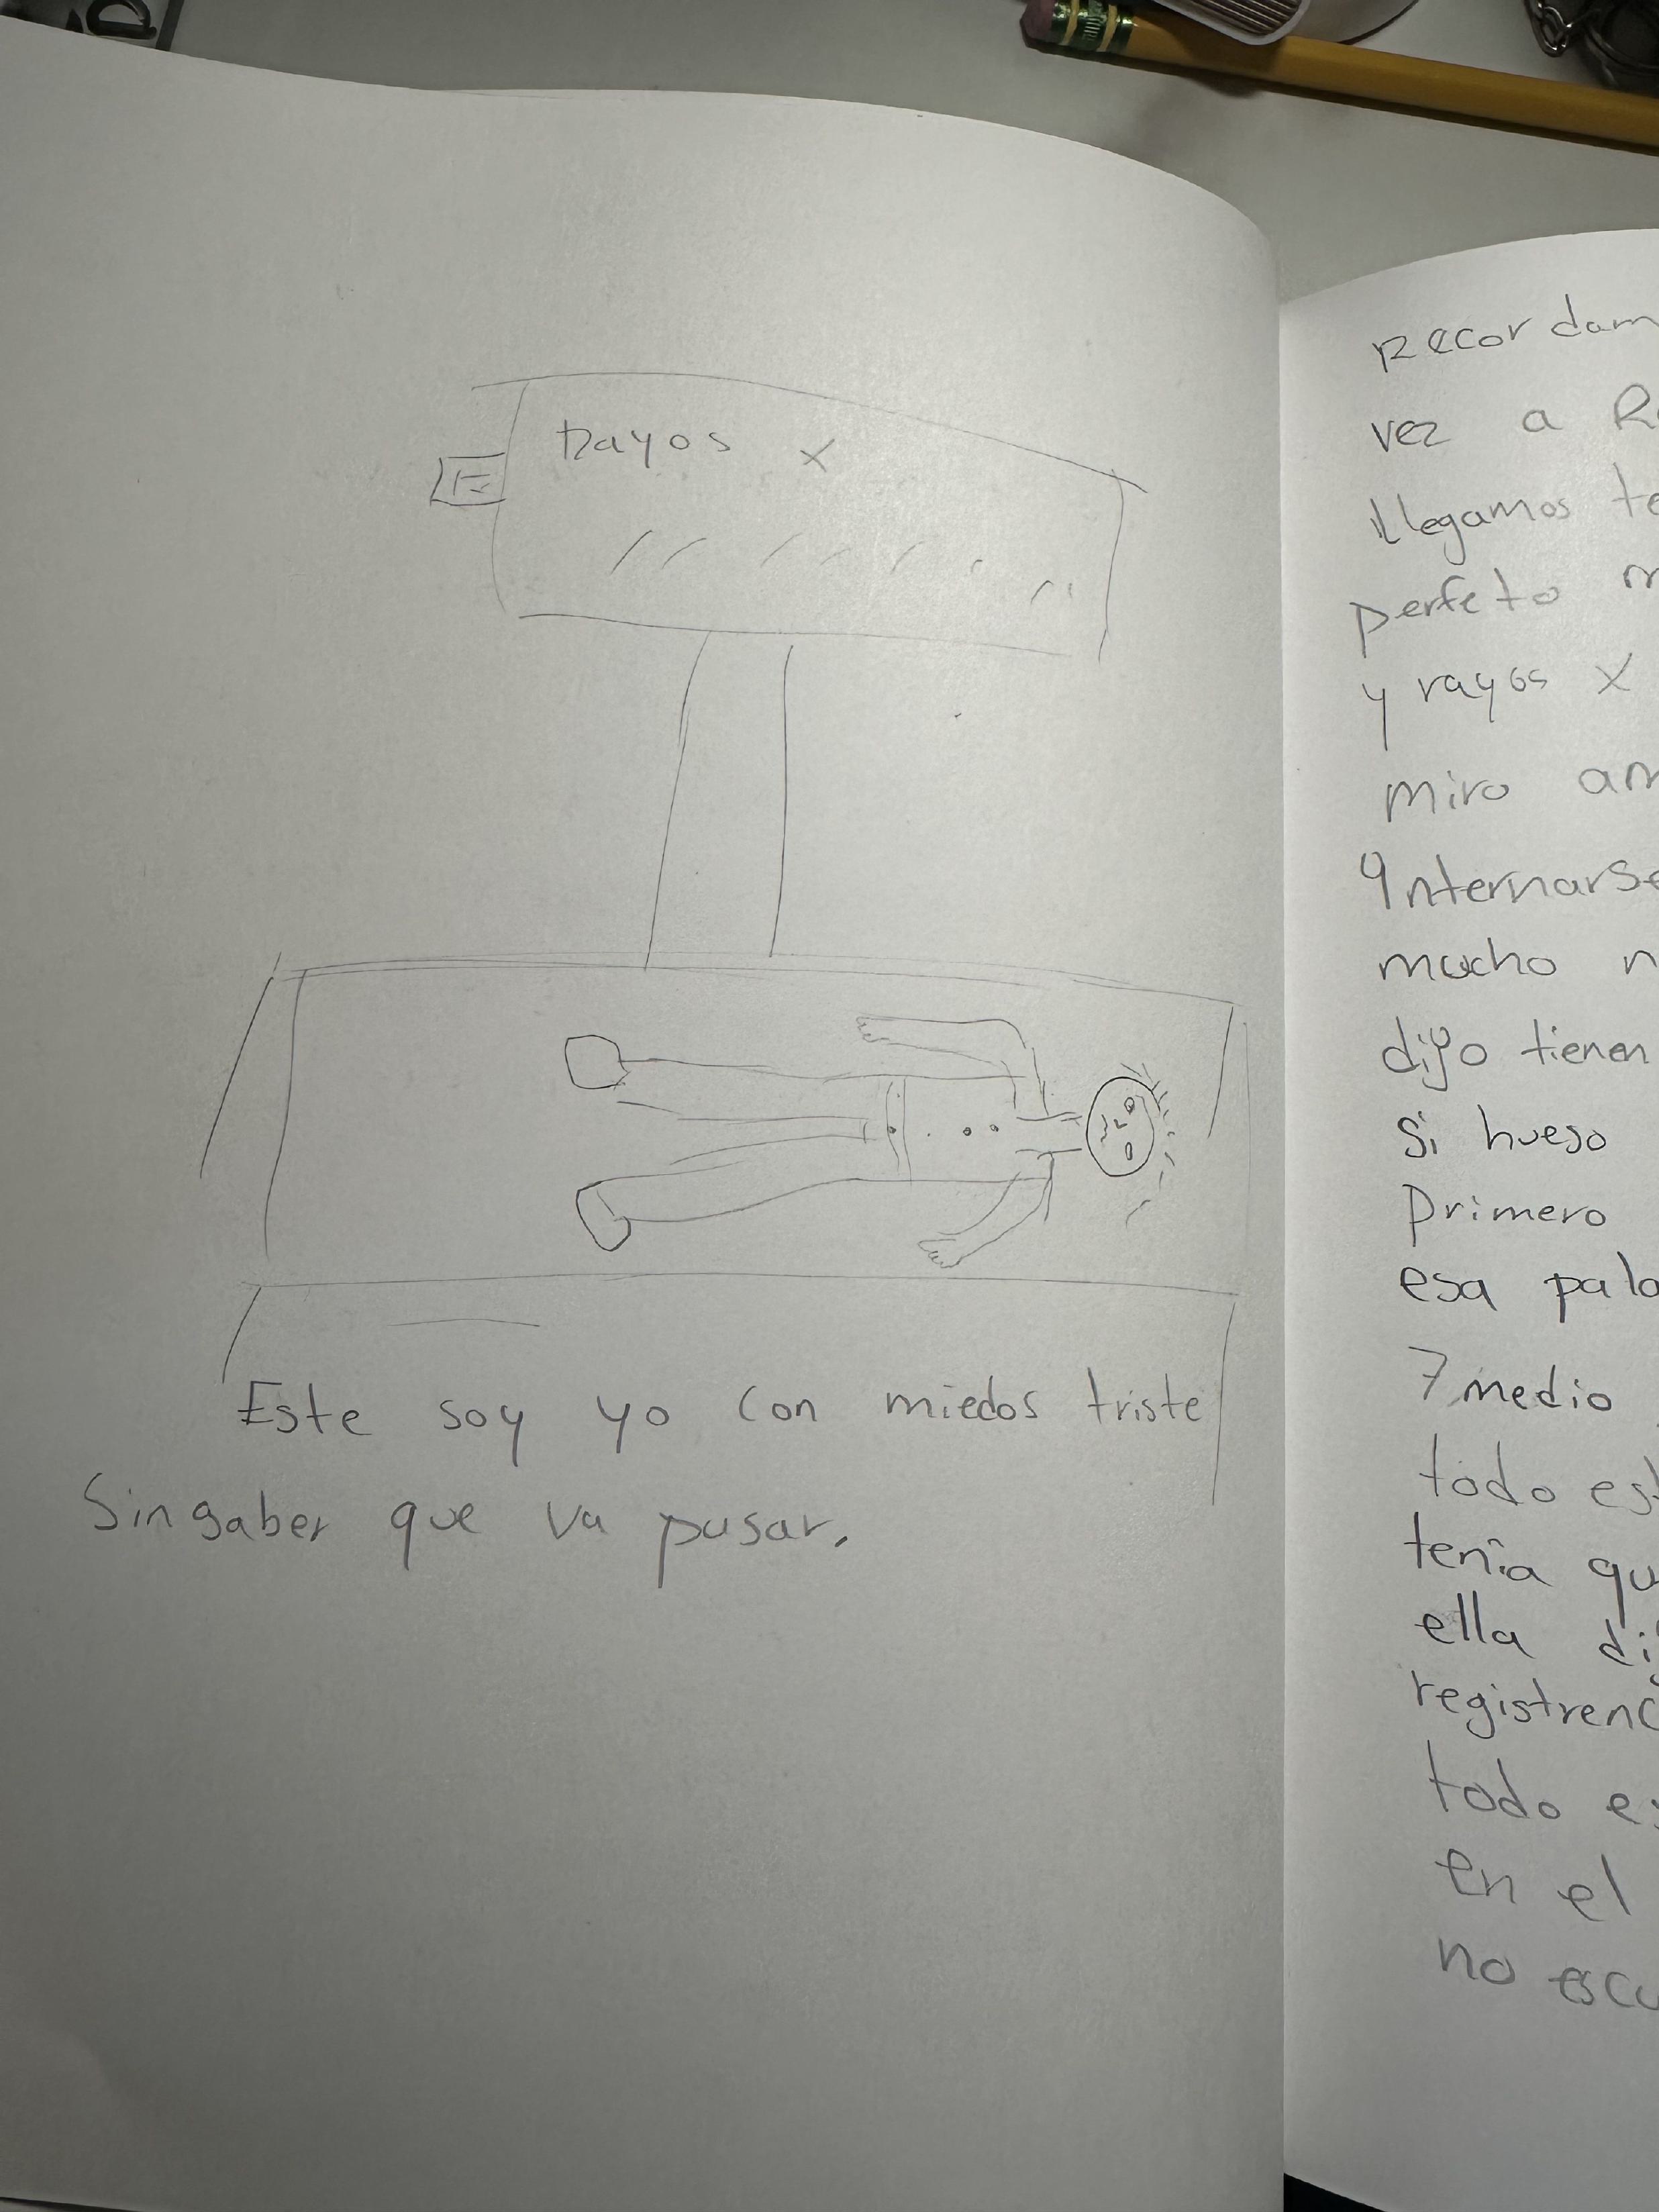 Rayos x
Este soy yo con miedos triste
Sin saber que va pasar.
recordam
vez a R
llegamos te
perfeto m
y rayos x
miro am
Internarse
mucho n
dijo tienen
si hueso
Primero
esa pala
7 medio
todo est
tenia qu
ella di
registrenc
todo e
en el
no escu